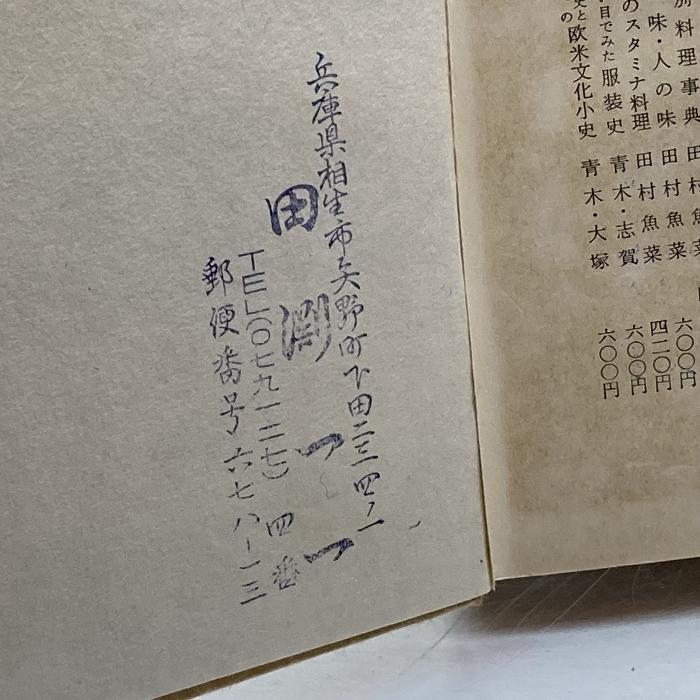 別料理事典 田村魚菜 六〇〇円
味・人の味 田村魚菜 四二〇円
のスタミナ料理 田村魚菜 六〇〇円
目でみた服装史 青木・志賀 六〇〇円
史と
の欧米文化小史 青木・大塚
兵庫県相生市矢野町下田二三四ノ一
田渕
TEL(〇七九一二七) 四番
郵便番号六七八ー一三